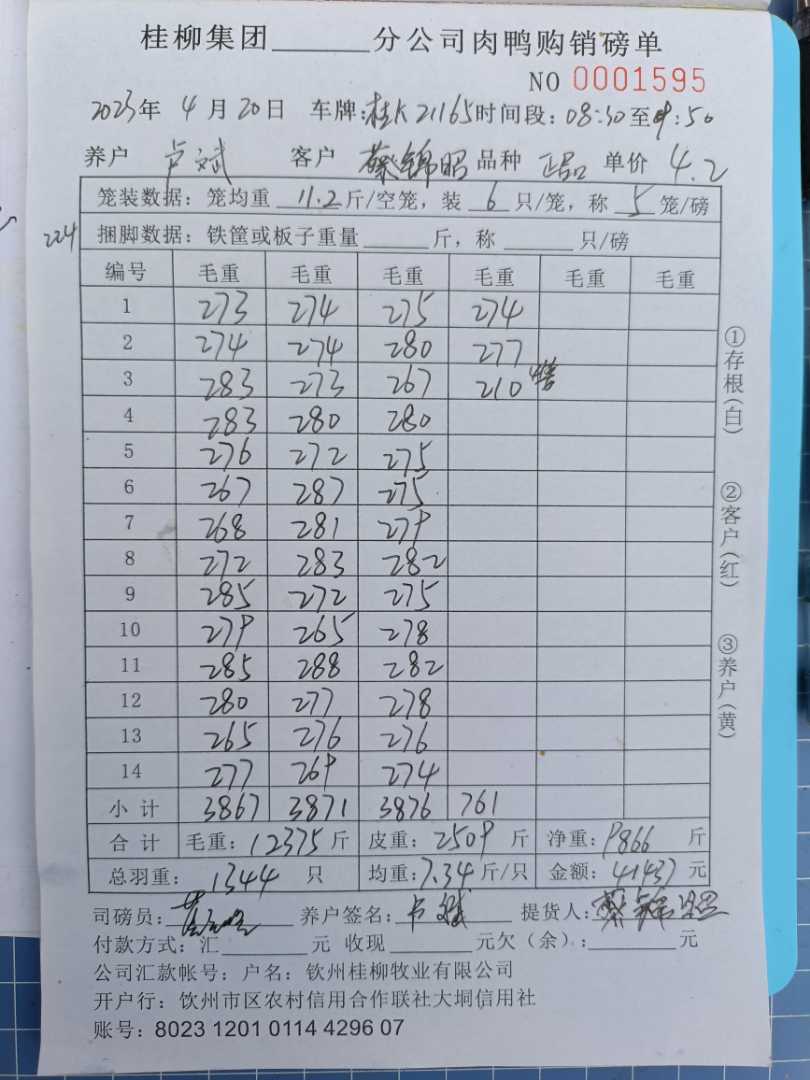 桂柳集团______分公司肉鸭购销磅单
NO 0001595
2023年 4月20日 车牌:桂K21165时间段:08:30至09:50
养户 卢斌 客户 蔡锦昭 品种 正品 单价 4.2
笼装数据:笼均重 11.2斤/空笼,装 6 只/笼,称 5 笼/磅
224
捆脚数据:铁筐或板子重量______斤,称______只/磅
编号 毛重 毛重 毛重 毛重 毛重 毛重
1 273 274 275 274
2 274 274 280 277
3 283 273 267 210
4 283 280 280
5 276 272 275
6 267 287 275
7 268 281 279
8 272 283 282
9 285 272 275
10 279 265 278
11 285 288 282
12 280 277 278
13 265 276 276
14 277 269 274
小计 3867 3871 3876 761
合计 毛重:12375斤 皮重:2509斤 净重:9866斤
总羽重: 1344 只 均重:7.34斤/只 金额:41437元
司磅员: 养户签名:卢斌 提货人:蔡锦昭
付款方式:汇______元 收现______元欠(余):______元
公司汇款帐号:户名:钦州桂柳牧业有限公司
开户行:饮州市区农村信用合作联社大垌信用社
账号:8023 1201 0114 4296 07
①存根(白)
②客户(红)
③养户(黄)